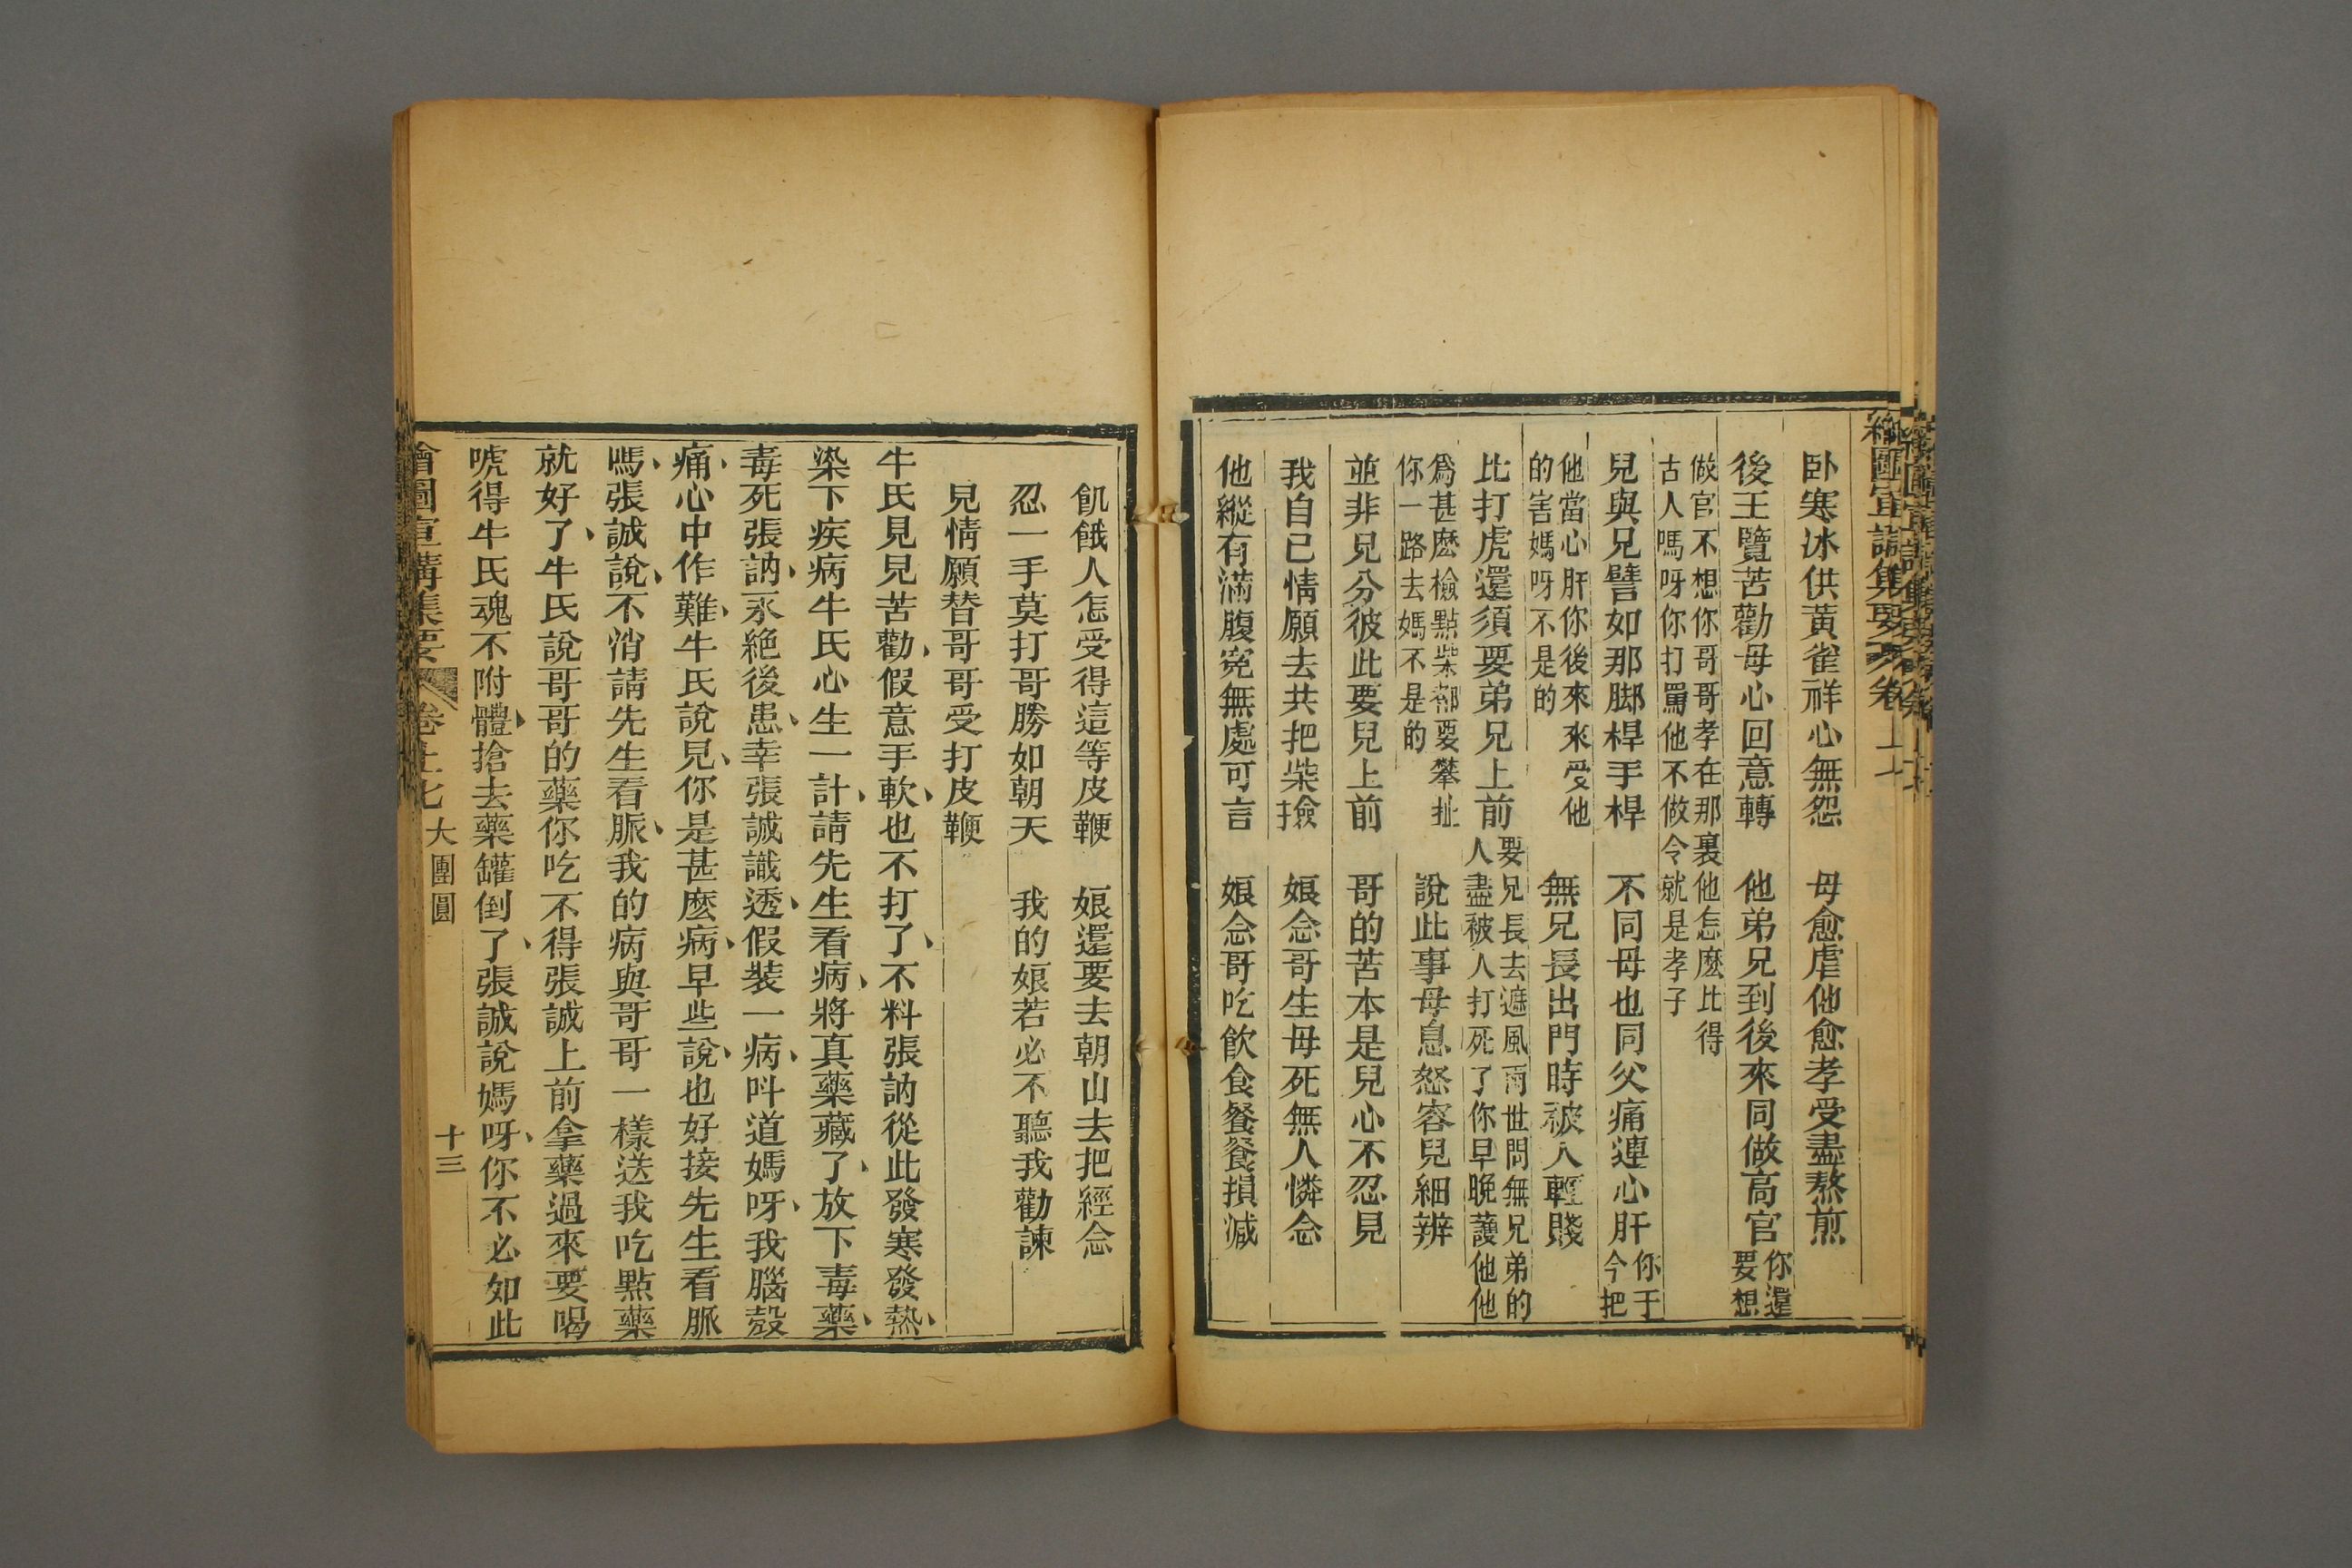 繪圖宣講集要卷十七
卧寒冰供黃雀祥心無怨　母愈虐他愈孝受盡熬煎
後王覽苦勸母心回意轉　他弟兄到後來同做高官你還要想
做官不想你哥哥孝在那裏他怎麽比得
古人嗎呀你打罵他不做令就是孝子
兒與兄譬如那脚桿手桿　不同母也同父痛連心肝你于今把
他當心肝你後來來受他
的害媽呀不是的　無兄長出門時被人輕賤
比打虎還須要弟兄上前要兄長去遮風雨世間無兄弟的人盡被人打死了你早晚護他他
爲甚麽檢點柴都要攀扯
你一路去媽不是的　說此事母息怒容兒細辨
並非兒分彼此要兒上前　哥的苦本是兒心不忍見
我自己情願去共把柴撿　娘念哥生母死無人憐念
他縱有滿腹寃無處可言　娘念哥吃飲食餐餐損減
飢餓人怎受得這等皮鞭　娘還要去朝山去把經念
忍一手莫打哥勝如朝天　我的娘若必不聽我勸諫
兒情願替哥哥受打皮鞭
牛氏見兒苦勸、假意手軟、也不打了、不料張訥從此發寒發熱、
染下疾病牛氏心生一計、請先生看病、將真藥藏了、放下毒藥、
毒死張訥、永絕後患、幸張誠識透、假裝一病、呌道媽呀、我腦殼
痛、心中作難、牛氏說、兒、你是甚麽病、早些說、也好接先生看脈
嗎、張誠說、不消請先生看脈、我的病與哥哥一樣送我吃點藥
就好了、牛氏說哥哥的藥你吃不得張誠上前拿藥過來要喝
唬得牛氏魂不附體、搶去藥罐倒了、張誠說媽呀、你不必如此
繪圖宣講集要　卷十七　大團圓　十三